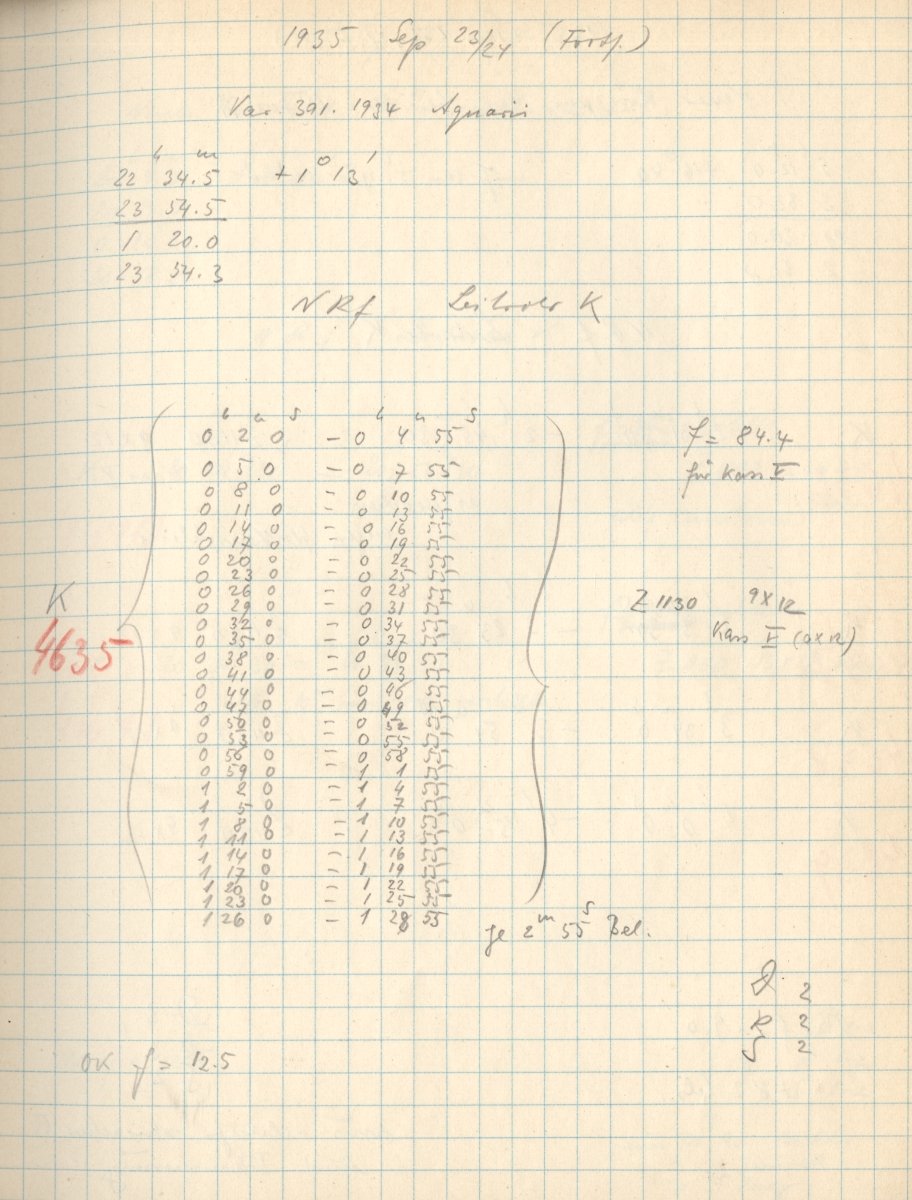 1935 Sep 23/24 (Forts.)
Var. 391. 1934 Aquarii
22ʰ 34.5ᵐ +1° 13'
23 54.5
1 20.0
23 54.3
NRf Leitrohr K
0ʰ 2ᵐ 0ˢ – 0ʰ 4ᵐ 55ˢ f = 84.4
0 5 0 – 0 7 55 für Kass V
0 8 0 – 0 10 55
0 11 0 – 0 13 55
0 14 0 – 0 16 55
0 17 0 – 0 19 55
0 20 0 – 0 22 55
0 23 0 – 0 25 55
0 26 0 – 0 28 55
K 0 29 0 – 0 31 55 Z 1130 9x12
0 32 0 – 0 34 55
4635 0 35 0 – 0 37 55 Kass V (9x12)
0 38 0 – 0 40 55
0 41 0 – 0 43 55
0 44 0 – 0 46 55
0 47 0 – 0 49 55
0 50 0 – 0 52 55
0 53 0 – 0 55 55
0 56 0 – 0 58 55
0 59 0 – 1 1 55
1 2 0 – 1 4 55
1 5 0 – 1 7 55
1 8 0 – 1 10 55
1 11 0 – 1 13 55
1 14 0 – 1 16 55
1 17 0 – 1 19 55
1 20 0 – 1 22 55
1 23 0 – 1 25 55
1 26 0 – 1 28 55
je 2ᵐ 55ˢ Bel.
D 2
R 2
S 2
OK f = 12.5